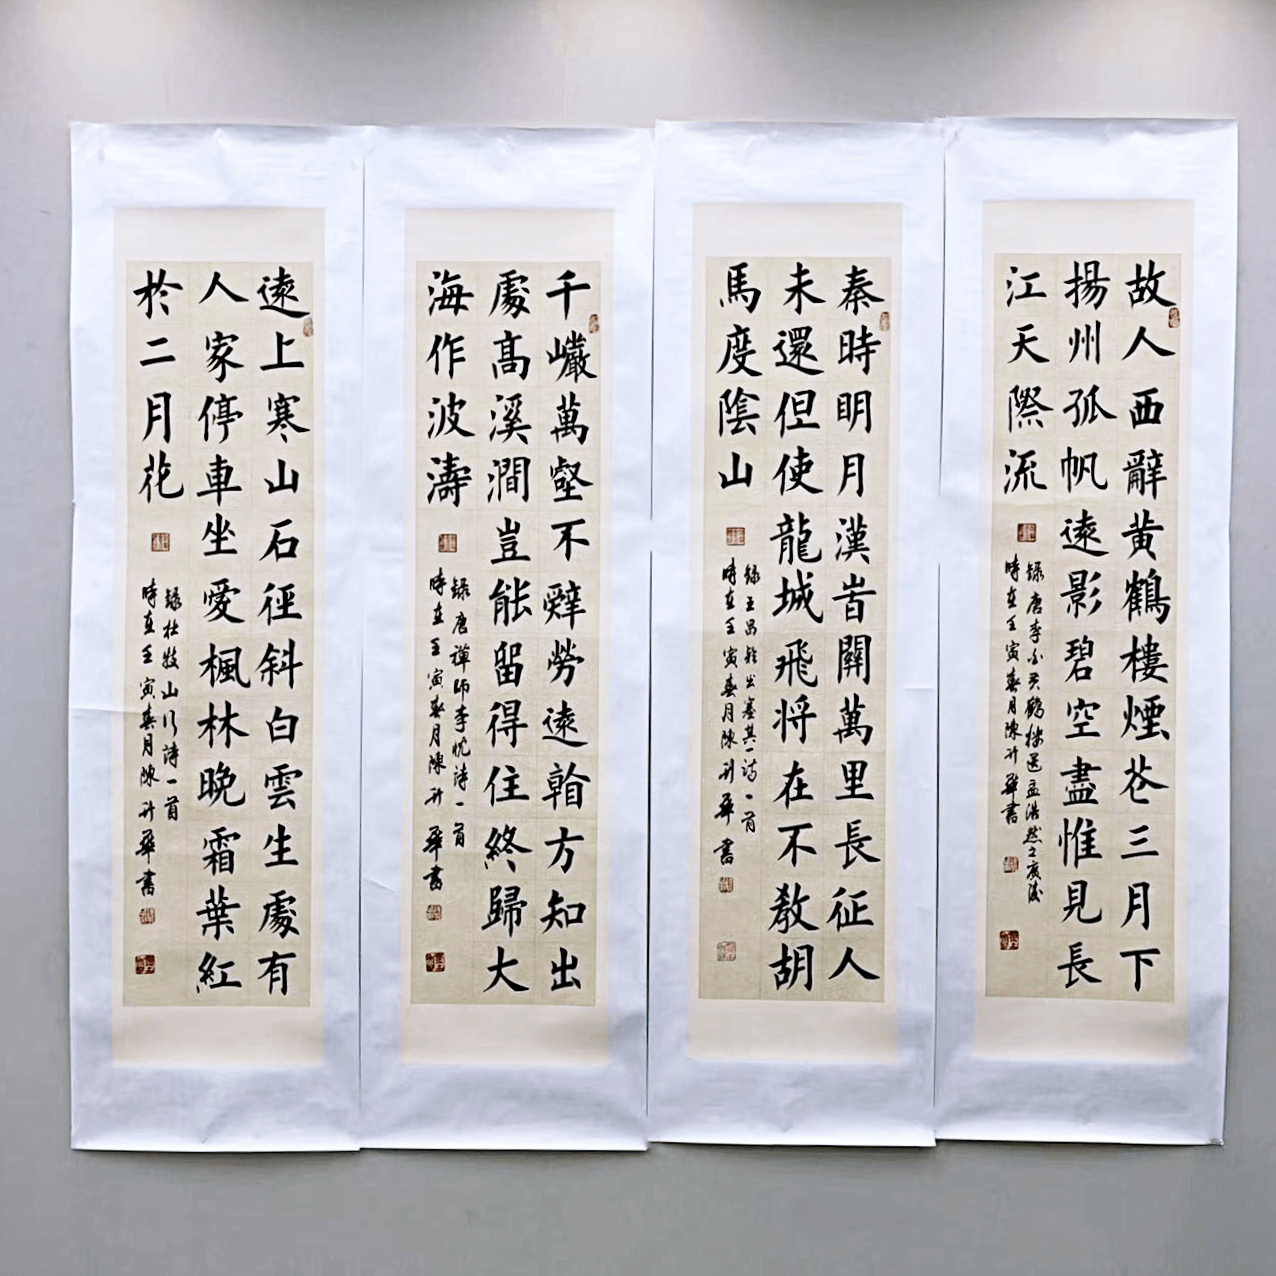 故人西辭黃鶴樓煙花三月下
揚州孤帆遠影碧空盡惟見長
江天際流
錄唐李白黃鶴樓送孟浩然之廣陵
時在壬寅春月陳升華書
秦時明月漢旹關萬里長征人
未還但使龍城飛将在不教胡
馬度陰山
錄王昌齡出塞其一詩一首
時在壬寅春月陳升華書
千巗萬壑不辭勞遠看方知出
處髙溪澗豈能留得住終歸大
海作波濤
錄唐禪師李忱詩一首
時在壬寅春月陳升華書
遠上寒山石徑斜白雲生處有
人家停車坐愛楓林晚霜葉紅
於二月花
錄杜牧山行詩一首
時在壬寅春月陳升華書